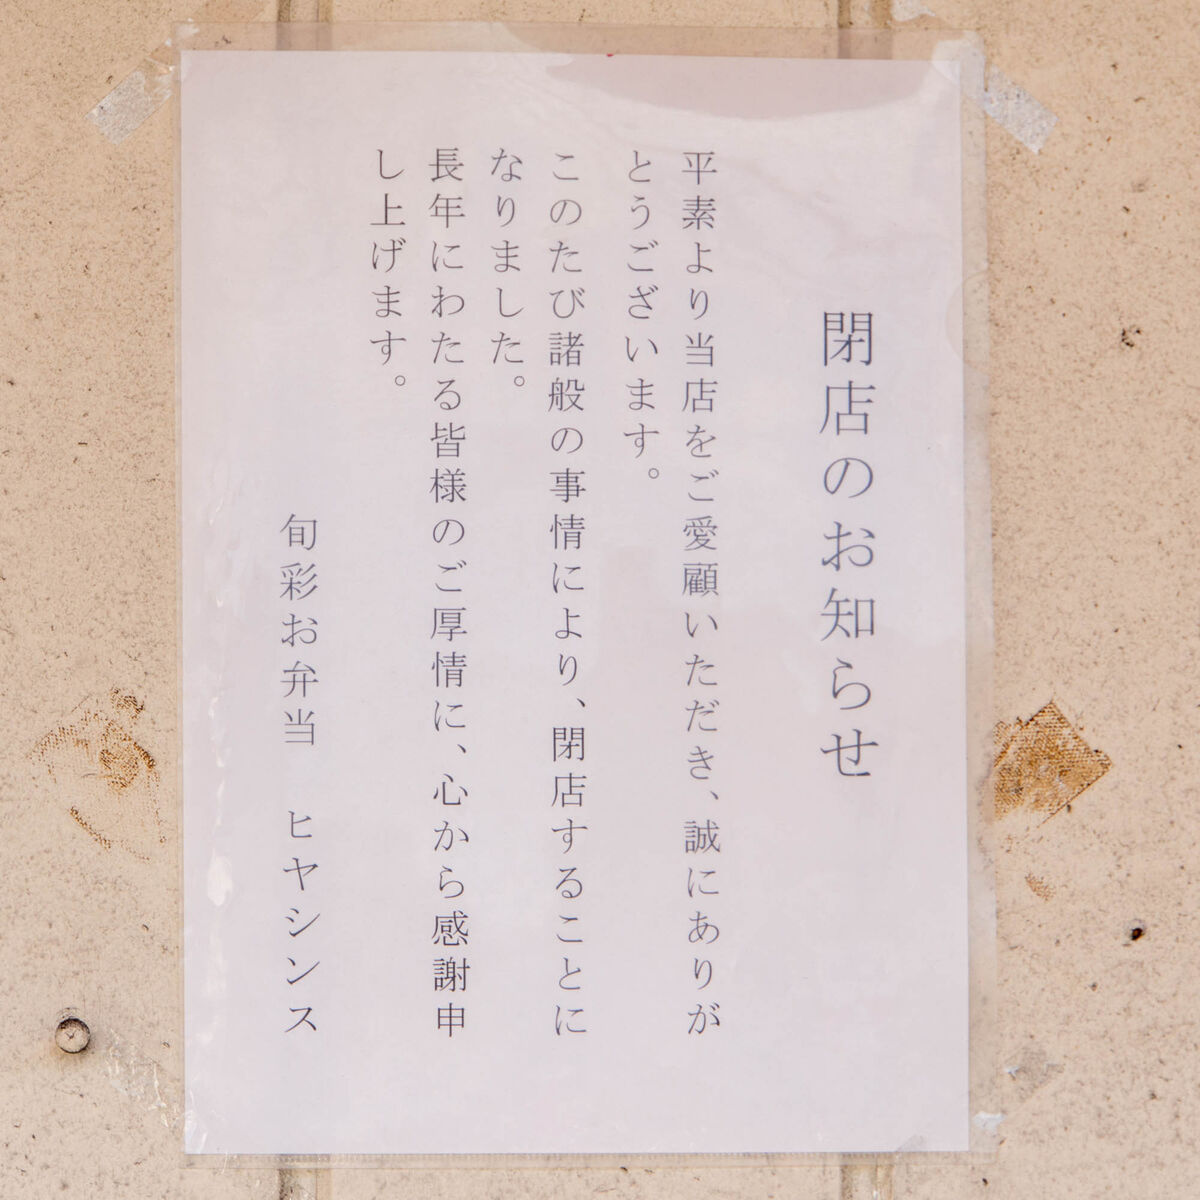 閉店のお知らせ
平素より当店をご愛顧いただき、誠にありが
とうございます。
このたび諸般の事情により、閉店することに
なりました。
長年にわたる皆様のご厚情に、心から感謝申
し上げます。
旬彩お弁当　ヒヤシンス